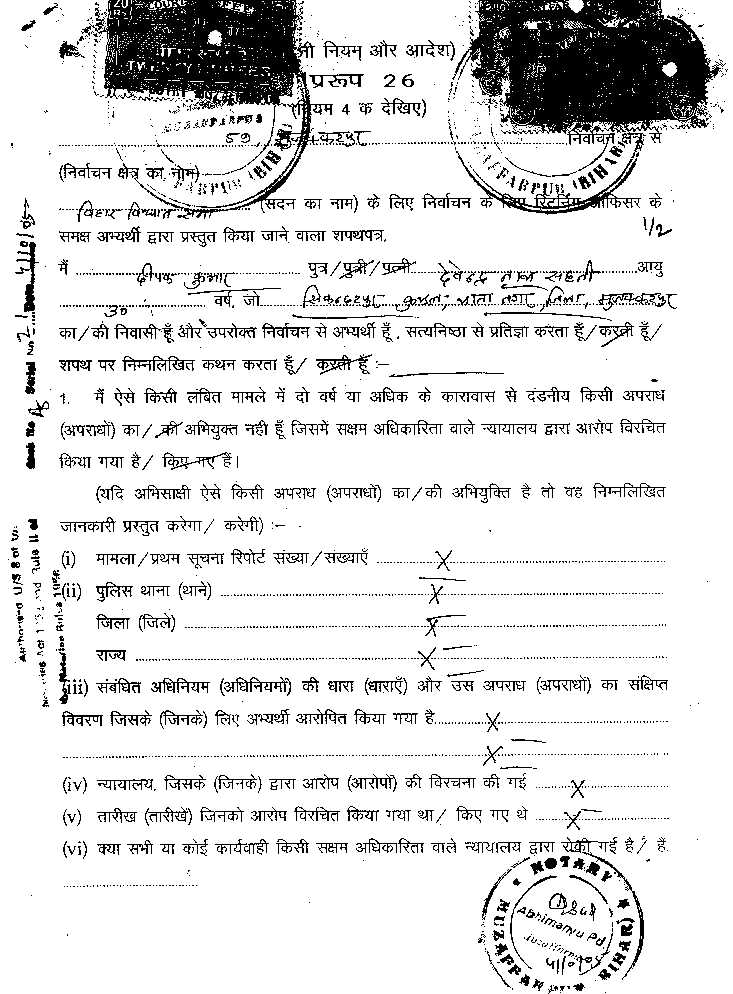 नी नियम और आदेश)
प्ररूप 26
(नियम 4 क देखिए)
59, मुजफ्फरपुर निर्वाचन क्षेत्र से
(निर्वाचन क्षेत्र का नाम)
बिहार विधान सभा (सदन का नाम) के लिए निर्वाचन के लिए रिटर्निंग ऑफिसर के
समक्ष अभ्यर्थी द्वारा प्रस्तुत किया जाने वाला शपथपत्र.
1/2
मैं दीपक कुमार पुत्र/पुत्री/पत्नी देवेन्द्र लाल सहनी आयु
30 वर्ष, जो सिकन्दरपुर जिला, मुजफ्फरपुर
का/की निवासी हूँ और उपरोक्त निर्वाचन से अभ्यर्थी हूँ, सत्यनिष्ठा से प्रतिज्ञा करता हूँ/करती हूँ/
शपथ पर निम्नलिखित कथन करता हूँ/ करती हूँ :–
1. मैं ऐसे किसी लंबित मामले में दो वर्ष या अधिक के कारावास से दंडनीय किसी अपराध
(अपराधों) का/ की अभियुक्त नही हूँ जिसमें सक्षम अधिकारिता वाले न्यायालय द्वारा आरोप विरचित
किया गया है/ किए गए हैं।
(यदि अभिसाक्षी ऐसे किसी अपराध (अपराधों) का/की अभियुक्ति है तो वह निम्नलिखित
जानकारी प्रस्तुत करेगा/ करेगी) :–
(i) मामला/प्रथम सूचना रिपोर्ट संख्या/संख्याएँ X
(ii) पुलिस थाना (थाने) X
जिला (जिले) X
राज्य X
(iii) संबंधित अधिनियम (अधिनियमों) की धारा (धाराएँ) और उस अपराध (अपराधों) का संक्षिप्त
विवरण जिसके (जिनके) लिए अभ्यर्थी आरोपित किया गया है X
X
(iv) न्यायालय, जिसके (जिनके) द्वारा आरोप (आरोपों) की विरचना की गई X
(v) तारीख (तारीखें) जिनको आरोप विरचित किया गया था/ किए गए थे X
(vi) क्या सभी या कोई कार्यवाही किसी सक्षम अधिकारिता वाले न्यायालय द्वारा रोकी गई है/ हैं
NOTARY
Abhimanyu Pd.
MUZAFFARPUR (BIHAR)